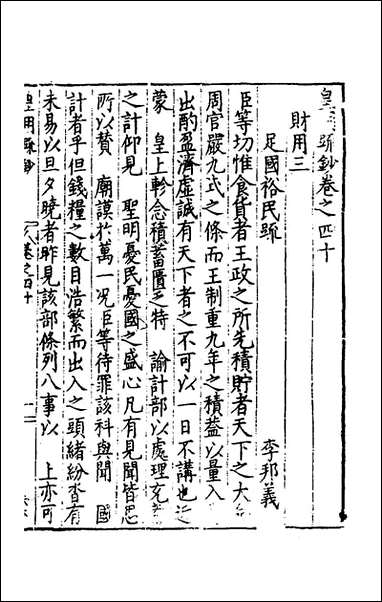 皇明疏鈔卷之四十
財用三
足國裕民疏 李邦義
臣等切惟食貨者王政之所先積貯者天下之大命
周官嚴九式之條而王制重九年之積葢以量入
出酌盈濟虛誠有天下者之不可以一日不講也近
蒙 皇上軫念積蓄匱乏特 諭計部以處理充
之計仰見 聖明憂民憂國之盛心凡有見聞皆思
所以贊 廟謨於萬一况臣等待罪該科與聞 國
計者乎但錢糧之數目浩繁而出入之頭緒紛沓有
未易以旦夕曉者昨見該部條列八事以 上亦可
皇明疏鈔 卷之四十 一